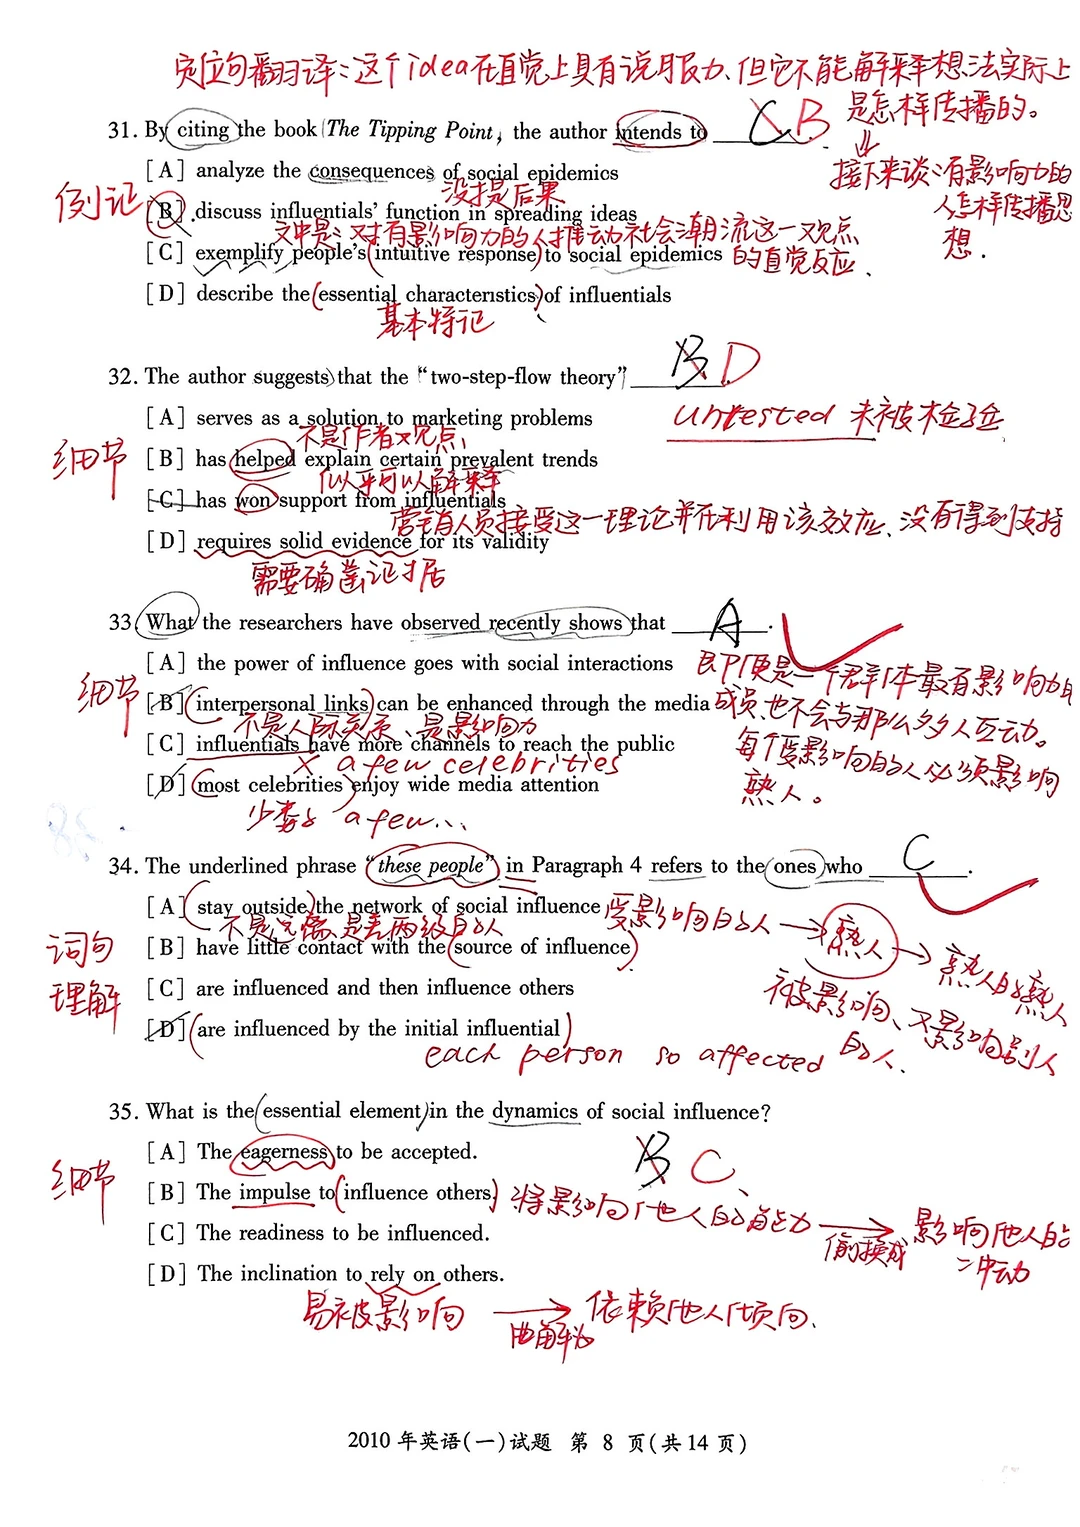 定位句翻译：这个idea在直觉上具有说服力、但它不能解释想法实际上
是怎样传播的。
31. By citing the book The Tipping Point, the author intends to ______. C B
接下来谈：有影响力的
人怎样传播思
想.
[A] analyze the consequences of social epidemics
没提后果
例证
[B] discuss influentials' function in spreading ideas
文中是：对有影响力的人推动社会潮流这一观点
的直觉反应.
[C] exemplify people's intuitive response to social epidemics
[D] describe the essential characteristics of influentials
基本特记
32. The author suggests that the "two-step-flow theory" ______ B D
untested 未被检验
[A] serves as a solution to marketing problems
不是作者观点
细节
[B] has helped explain certain prevalent trends
似乎可以解释
[C] has won support from influentials
营销人员接受这一理论并在利用该效应、没有得到支持
[D] requires solid evidence for its validity
需要确凿证据
33. What the researchers have observed recently shows that ______. A
[A] the power of influence goes with social interactions
即便是一个群体最有影响力的
成员、也不会与那么多人互动。
每个受影响的人必须影响
熟人。
细节
[B] interpersonal links can be enhanced through the media
不是人际关系、是影响力
[C] influentials have more channels to reach the public
× a few celebrities
[D] most celebrities enjoy wide media attention
少数 a few...
34. The underlined phrase "these people" in Paragraph 4 refers to the ones who ______. C
[A] stay outside the network of social influence
受影响的人 → 熟人 → 熟人的熟人
词句
理解
[B] have little contact with the source of influence
被影响、又影响别人
的人.
[C] are influenced and then influence others
[D] are influenced by the initial influential
each person so affected
35. What is the essential element in the dynamics of social influence?
[A] The eagerness to be accepted.
B C
细节
[B] The impulse to influence others.
将影响他人的能力 → 影响他人的
偷换成
冲动
[C] The readiness to be influenced.
[D] The inclination to rely on others.
易被影响 → 依赖他人倾向.
曲解为
2010 年英语(一)试题 第 8 页(共14页)